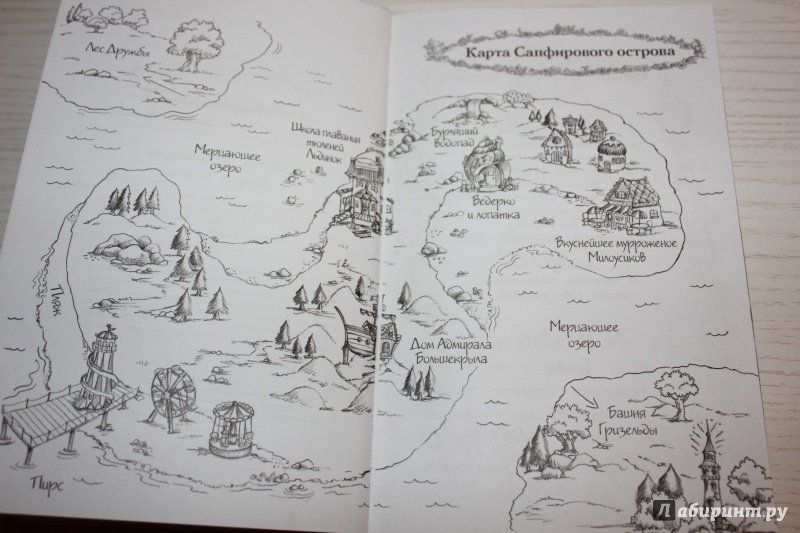 Карта Сапфирового острова
Лес Дружбы
Школа плавания
тюленей
Лодинок
Мерцающее
озеро
Бурлящий
Водопад
Ведерко
и лопатка
Вкуснейшее мурроженое
Милоусиков
Пляж
Дом Адмирала
Большекрыла
Мерцающее
озеро
Башня
Гризельды
Пирс
Лабиринт.ру